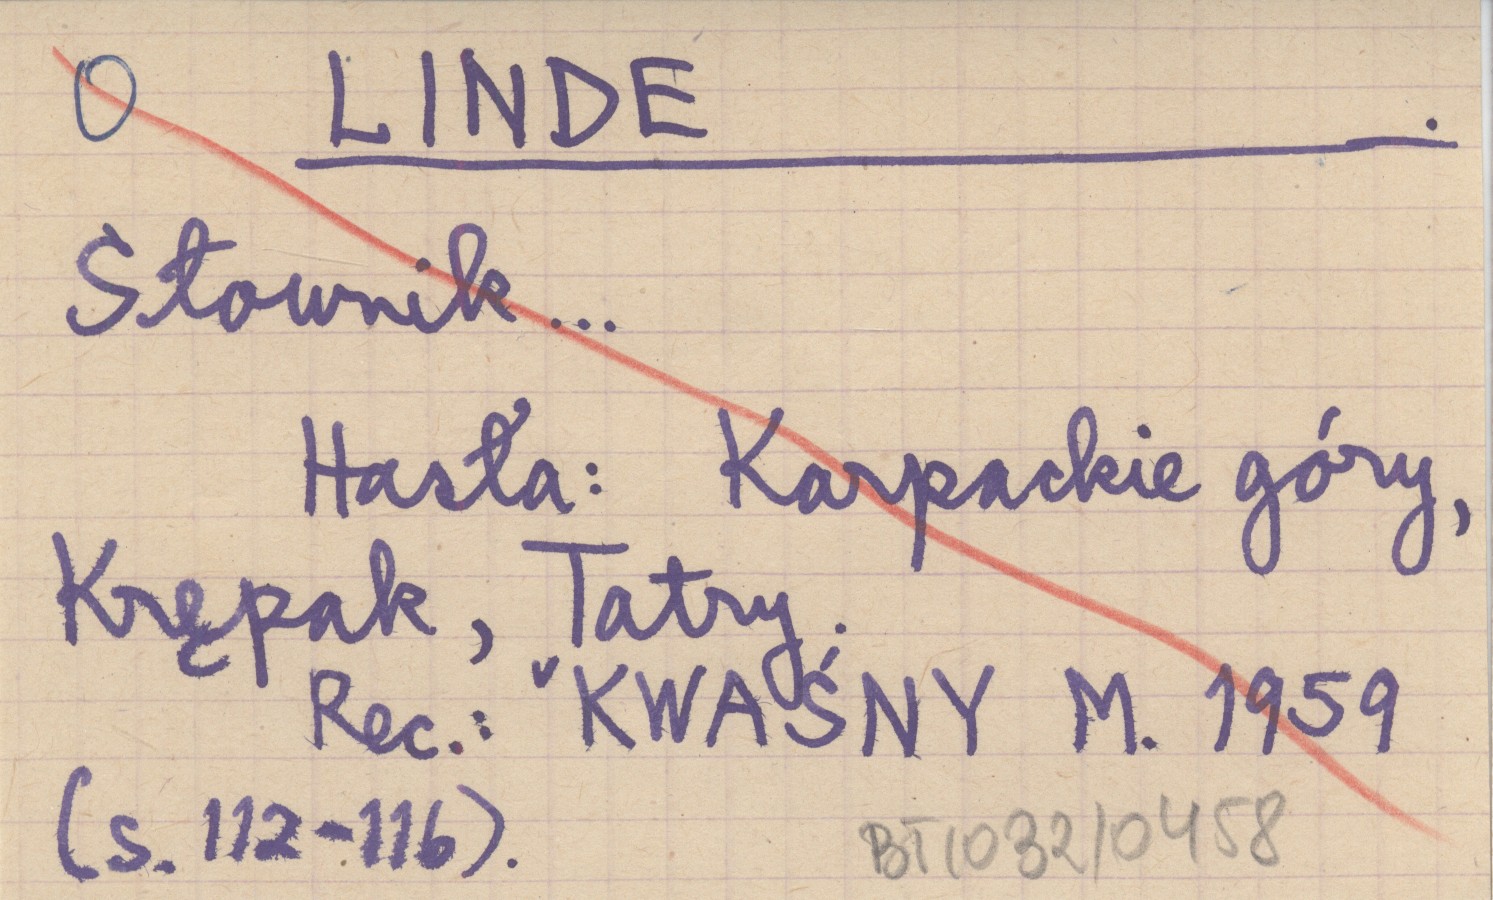 O LINDE .
Słownik...
Hasła: Karpackie góry,
Krępak, Tatry.
Rec.: ˇKWAŚNY M. 1959
(s. 112-116).
BT1032/0458